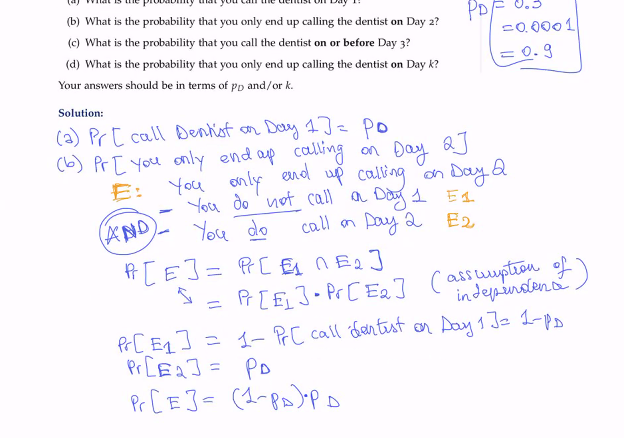 (a) What is the probability that you call the dentist on Day 1?
(b) What is the probability that you only end up calling the dentist on Day 2?
(c) What is the probability that you call the dentist on or before Day 3?
(d) What is the probability that you only end up calling the dentist on Day k?
Your answers should be in terms of p_D and/or k.
P_D = 0.3
= 0.0001
= 0.9
Solution:
(a) Pr[ call Dentist on Day 1] = p_D
(b) Pr[ you only end up calling on Day 2]
E: You only end up calling on Day 2
– You do not call on Day 1 E1
AND – You do call on Day 2 E2
Pr[E] = Pr[E1 ∩ E2]
= Pr[E1] · Pr[E2] (assumption of independence)
Pr[E1] = 1 - Pr[ call dentist on Day 1] = 1-p_D
Pr[E2] = p_D
Pr[E] = (1-p_D)·p_D